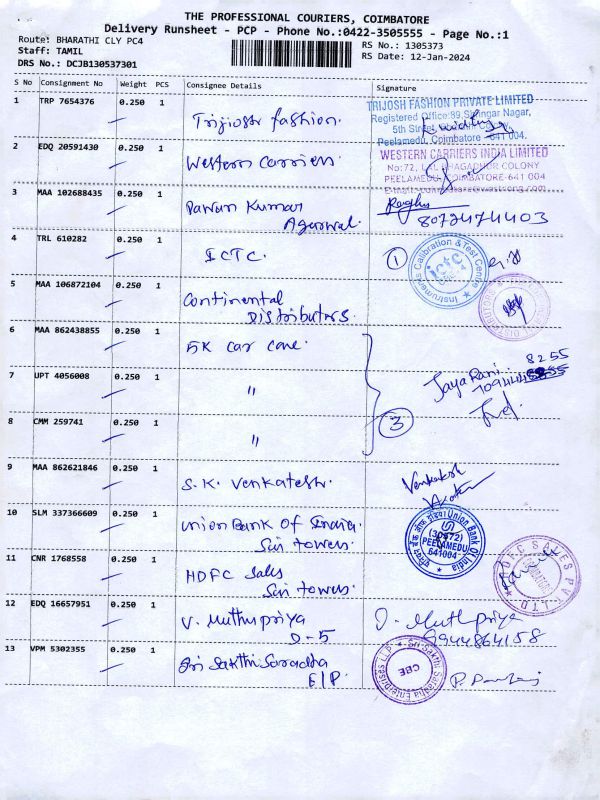 THE PROFESSIONAL COURIERS, COIMBATORE
Delivery Runsheet - PCP - Phone No.:0422-3505555 - Page No.:1
Route: BHARATHI CLY PC4
RS No.: 1305373
Staff: TAMIL
RS Date: 12-Jan-2024
DRS No.: DCJB130537301
S No Consignment No Weight PCS Consignee Details Signature
1 TRP 7654376 0.250 1 Trijiosh fashion.
TRIJOSH FASHION PRIVATE LIMITED
Registered Office:89, Nagar,
5th Street,
Peelamedu, Coimbatore - 641 004.
2 EDQ 20591430 0.250 1 Western Carriers.
WESTERN CARRIERS INDIA LIMITED
No:72, LAL BHAGADHUR COLONY
PEELAMEDU, COIMBATORE-641 004
3 MAA 102688435 0.250 1 Pawan Kumar
Agarwal.
8072474403
4 TRL 610282 0.250 1 ICTC. 1
Instruments Calibration & Test Centre
ictc
5 MAA 106872104 0.250 1 Continental
Distributors.
6 MAA 862438855 0.250 1 5K car care.
8255
7 UPT 4056008 0.250 1 "
Jaya Rani.
8 CMM 259741 0.250 1 " 3
9 MAA 862621846 0.250 1 S.K. Venkatesh.
Venkatesh
10 SLM 337366609 0.250 1 Union Bank Of
Siri towers.
Union Bank Of India
(30872)
PEELAMEDU
641004
11 CNR 1768558 0.250 1 HDFC Sales
Siri towers.
HDFC SALES PVT. LTD.
12 EDQ 16657951 0.250 1 V. Muthupriya
D-5
D. Muthupriya
9944864158
13 VPM 5302355 0.250 1 Sri Sakthi Saradha
E/P.
Sri Sakthi Saradha Enterprises LLP
CBE